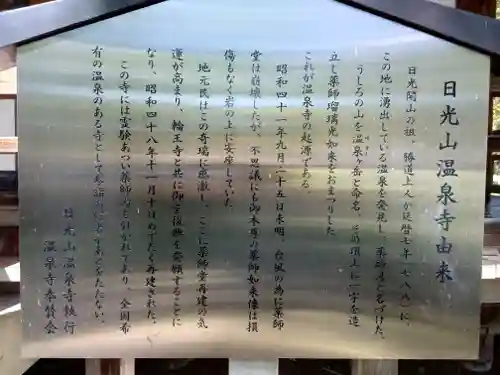 日光山温泉寺由来
日光開山の祖、勝道上人が延暦七年(七八八)に、
この地に湧出している温泉を発見し、薬師湯と名づけ、
うしろの山を温泉ヶ岳と命名、その頂上に一宇を造
立し薬師瑠璃光如来をおまつりした
これが温泉寺の起源である。
昭和四十一年九月二十五日未明、台風の為に薬師
堂は崩壊したが、不思議にも御本尊の薬師如来像は損
傷もなく岩の上に安座していた。
地元民はこの霊瑞に感激し、ここに薬師堂再建の気
運が高まり、輪王寺と共に御堂復興を発願することに
なり、昭和四十八年十一月十日めでたく再建された。
この寺には霊験あつい薬師の湯も引かれており、全国希
有の温泉のある寺として
日光山温泉寺執行
温泉寺奉賛会